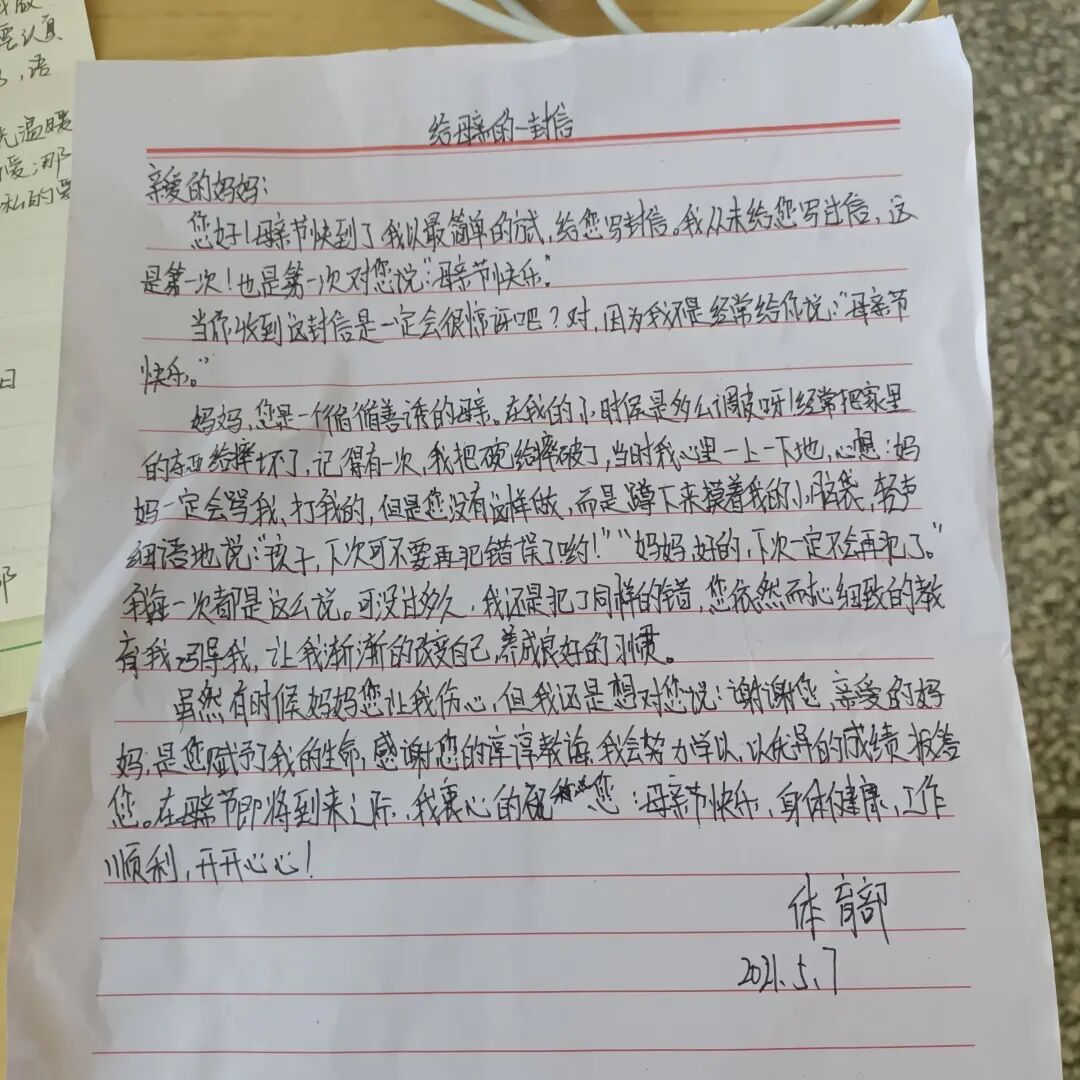 给母亲的一封信
亲爱的妈妈：
您好！母亲节快到了我以最简单的方式，给您写封信。我从未给您写过信，这
是第一次！也是第一次对您说："母亲节快乐。"
当你收到这封信是一定会很惊讶吧？对，因为我不是经常给你说："母亲节
快乐。"
妈妈，您是一个循循善诱的母亲。在我的小时候是多么调皮呀！经常把家里
的东西给摔坏了，记得有一次，我把碗给摔破了，当时我心里一上一下地，心想：妈
妈一定会骂我、打我的，但是您没有这样做，而是蹲下来摸着我的小脑袋，轻声
细语地说："孩子，下次可不要再犯错误了哟！""妈妈，好的，下次一定不会再犯了。"
我每一次都是这么说。可没过多久，我还是犯了同样的错，您依然耐心细致的教
育我，引导我，让我渐渐的改变自己，养成良好的习惯。
虽然有时候妈妈您让我伤心，但我还是想对您说：谢谢您，亲爱的妈
妈，是您赋予了我的生命，感谢您的谆谆教诲，我会努力学以，以优异的成绩报答
您。在母亲节即将到来之际，我衷心的祝您：母亲节快乐，身体健康，工作
顺利，开开心心！
体育部
2021.5.7
要认真
，语
温暖
爱，那
私的
日
部